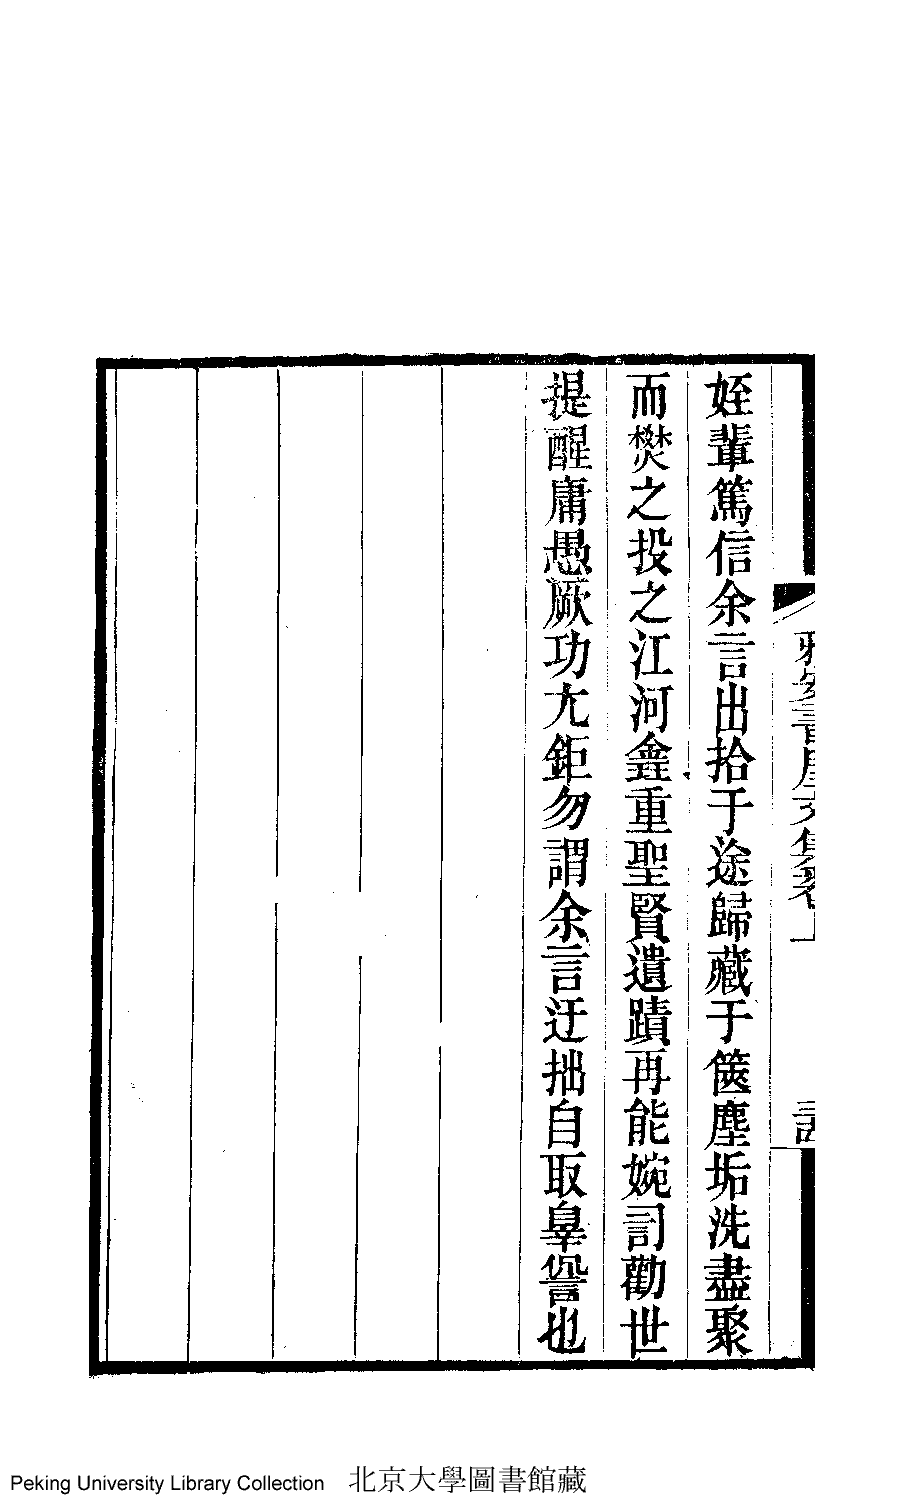 姪輩篤信余言出拾于途歸藏于篋塵垢洗盡聚
而焚之投之江河龕重聖賢遺蹟再能婉司勸世
提醒庸愚厥功尤鉅勿謂余言迂拙自取辠訾也
雅安書屋文集卷
Peking University Library Collection 北京大學圖書館藏